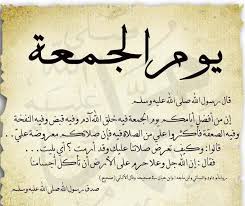 يوم الجمعة
قال رسول الله صلى الله عليه وسلم
إن من أفضل أيامكم يوم الجمعة فيه خلق الله آدم وفيه قبض وفيه النفخة
وفيه الصعقة فأكثروا علي من الصلاة فيه فإن صلاتكم معروضة علي..
قالوا: وكيف تعرض صلاتنا عليك وقد أرمت؟ أي بليت...
فقال: إن الله جل وعلا حرم على الأرض أن تأكل أجسامنا
صدق رسول الله صلى الله عليه وسلم